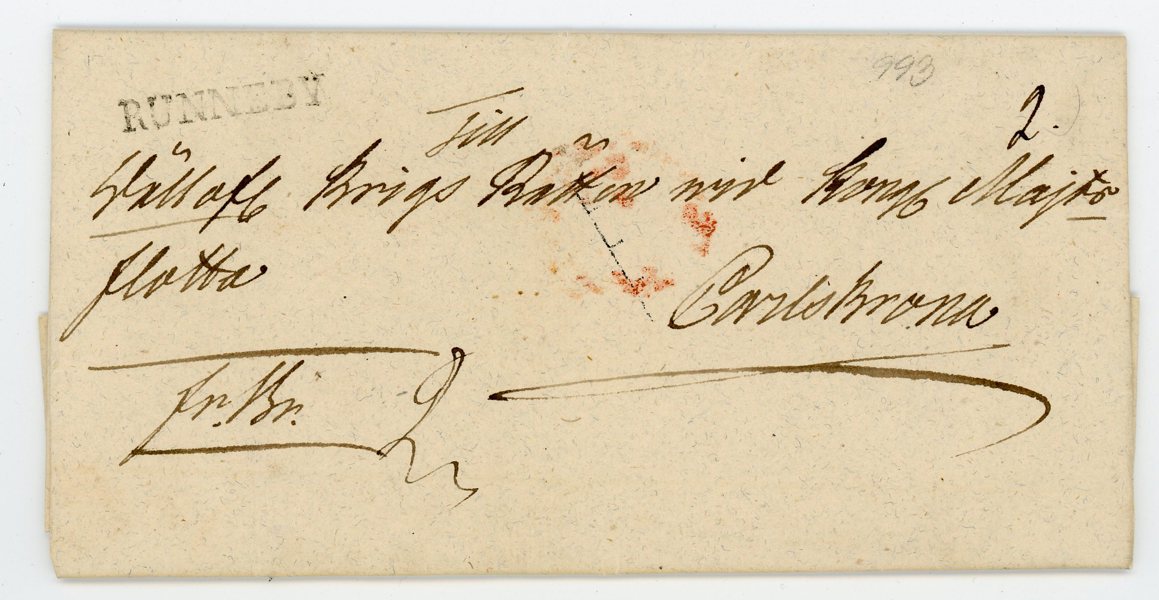 993
RUNNEBY
2.
Till
Wällofl Krigs Rätten vid Kongl Majts
flotta
Carlskrona
fr. Br. 2